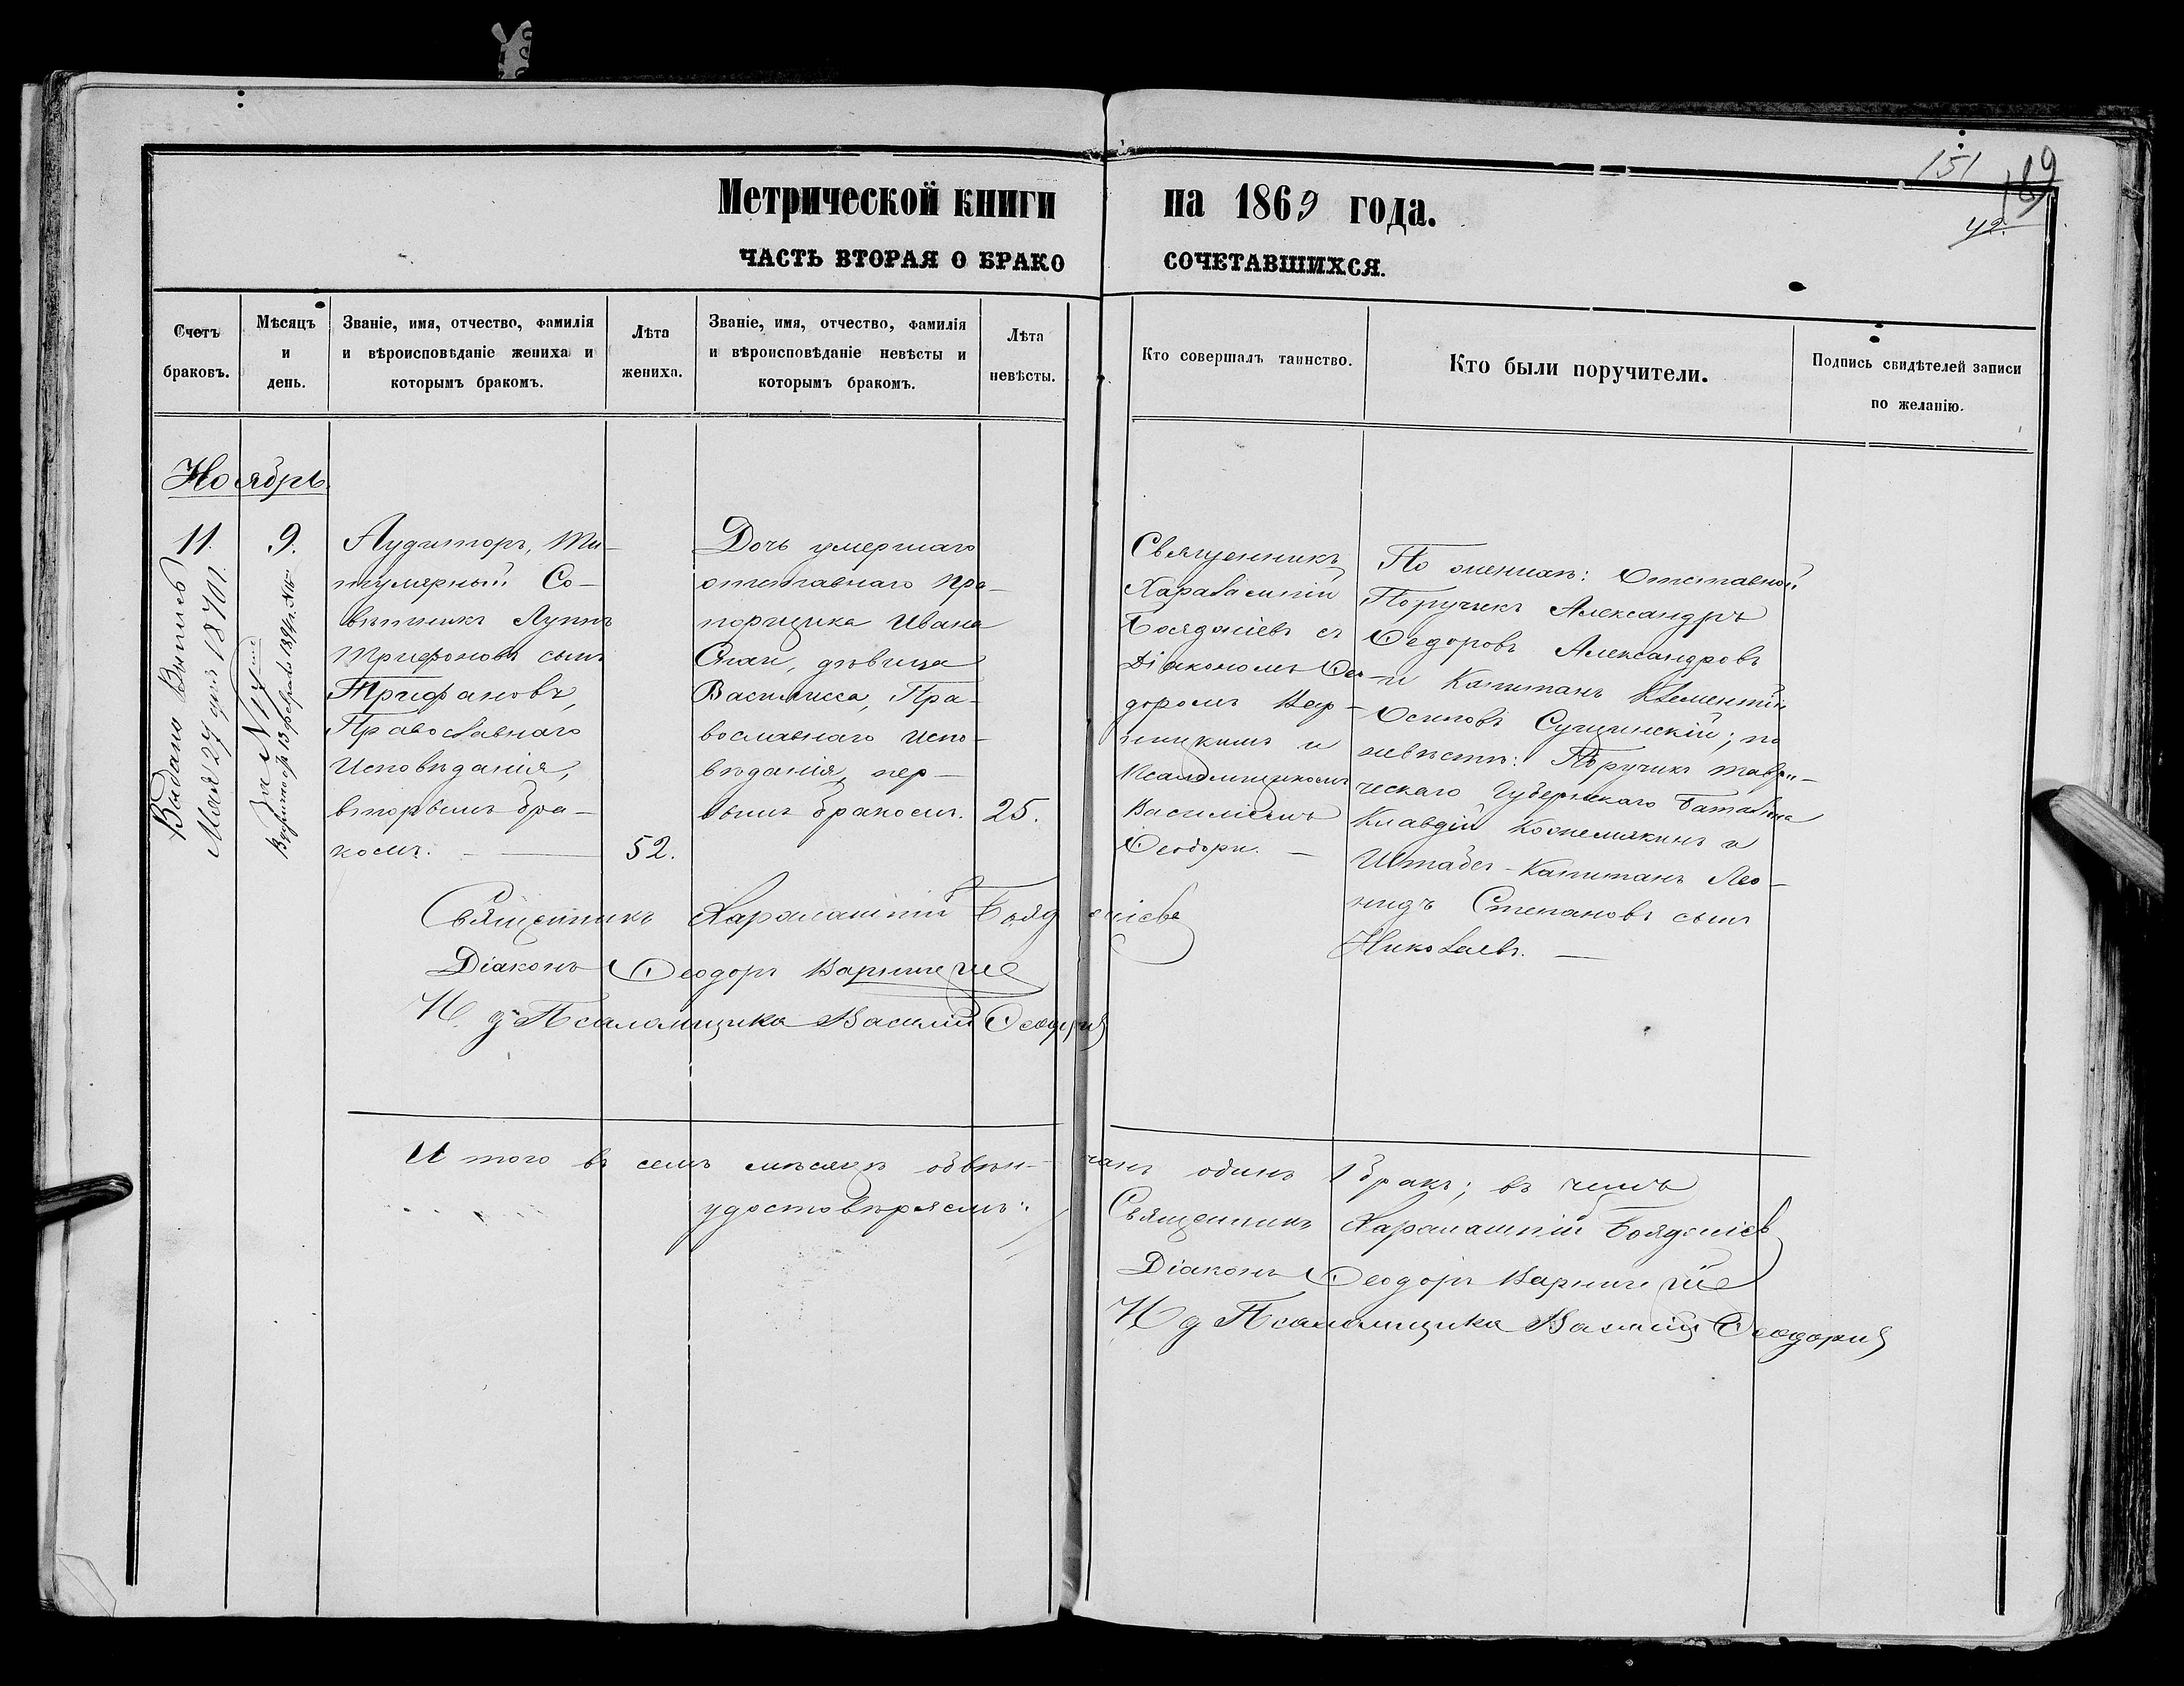 151
189
42.
Метрической книги на 1869 года.
ЧАСТЬ ВТОРАЯ О БРАКО СОЧЕТАВШИХСЯ.
Счетъ
браковъ.
Мѣсяцъ
и
день.
Званіе, имя, отчество, фамилія
и вѣроисповѣданіе жениха и
которымъ бракомъ.
Лѣта
жениха.
Званіе, имя, отчество, фамилія
и вѣроисповѣданіе невѣсты и
которымъ бракомъ.
Лѣта
невѣсты.
Кто совершалъ таинство.
Кто были поручители.
Подпись свидѣтелей записи
по желанію.
Ноябрь.
11.
9.
Выдана Выпись
Мая 27 дня 1870 г.
за №
13 февраля
Аудиторъ, Ти-
тулярный Со-
вѣтникъ Луппъ
Трифоновъ сынъ
Трифановъ,
Православнаго
Исповѣданія,
вторымъ бра-
комъ.
52.
Дочь умершаго
отставнаго Пра-
порщика Ивана
дѣвица
Василисса, Пра-
вославнаго Испо-
вѣданія, пер-
вымъ бракомъ.
25.
Священникъ
Харалампій
Бояджіевъ съ
Діакономъ Ѳео-
доромъ Вар-
ницкимъ и
Псаломщикомъ
Василіемъ
Ѳеодори.
По женихѣ: Отставной
Поручикъ Александръ
Ѳедоровъ Александровъ
и Капитанъ Климентій
Осиповъ Сущинскій; по
невѣстѣ: Поручикъ Таври-
ческаго Губернскаго Баталіона
Клавдій Кожемякинъ и
Штабсъ-Капитанъ Лео-
нидъ Степановъ сынъ
Николаевъ.
Священникъ Харалампій Бояджіевъ
Діаконъ Ѳеодоръ Варницкій
И. д. Псаломщика Василій Ѳеодори
Итого въ семъ мѣсяцѣ обвѣн-чанъ одинъ 1 бракъ; въ чемъ
удостовѣряемъ:
Священникъ Харалампій Бояджіевъ
Діаконъ Ѳеодоръ Варницкій
И д Псаломщика Василій Ѳеодори